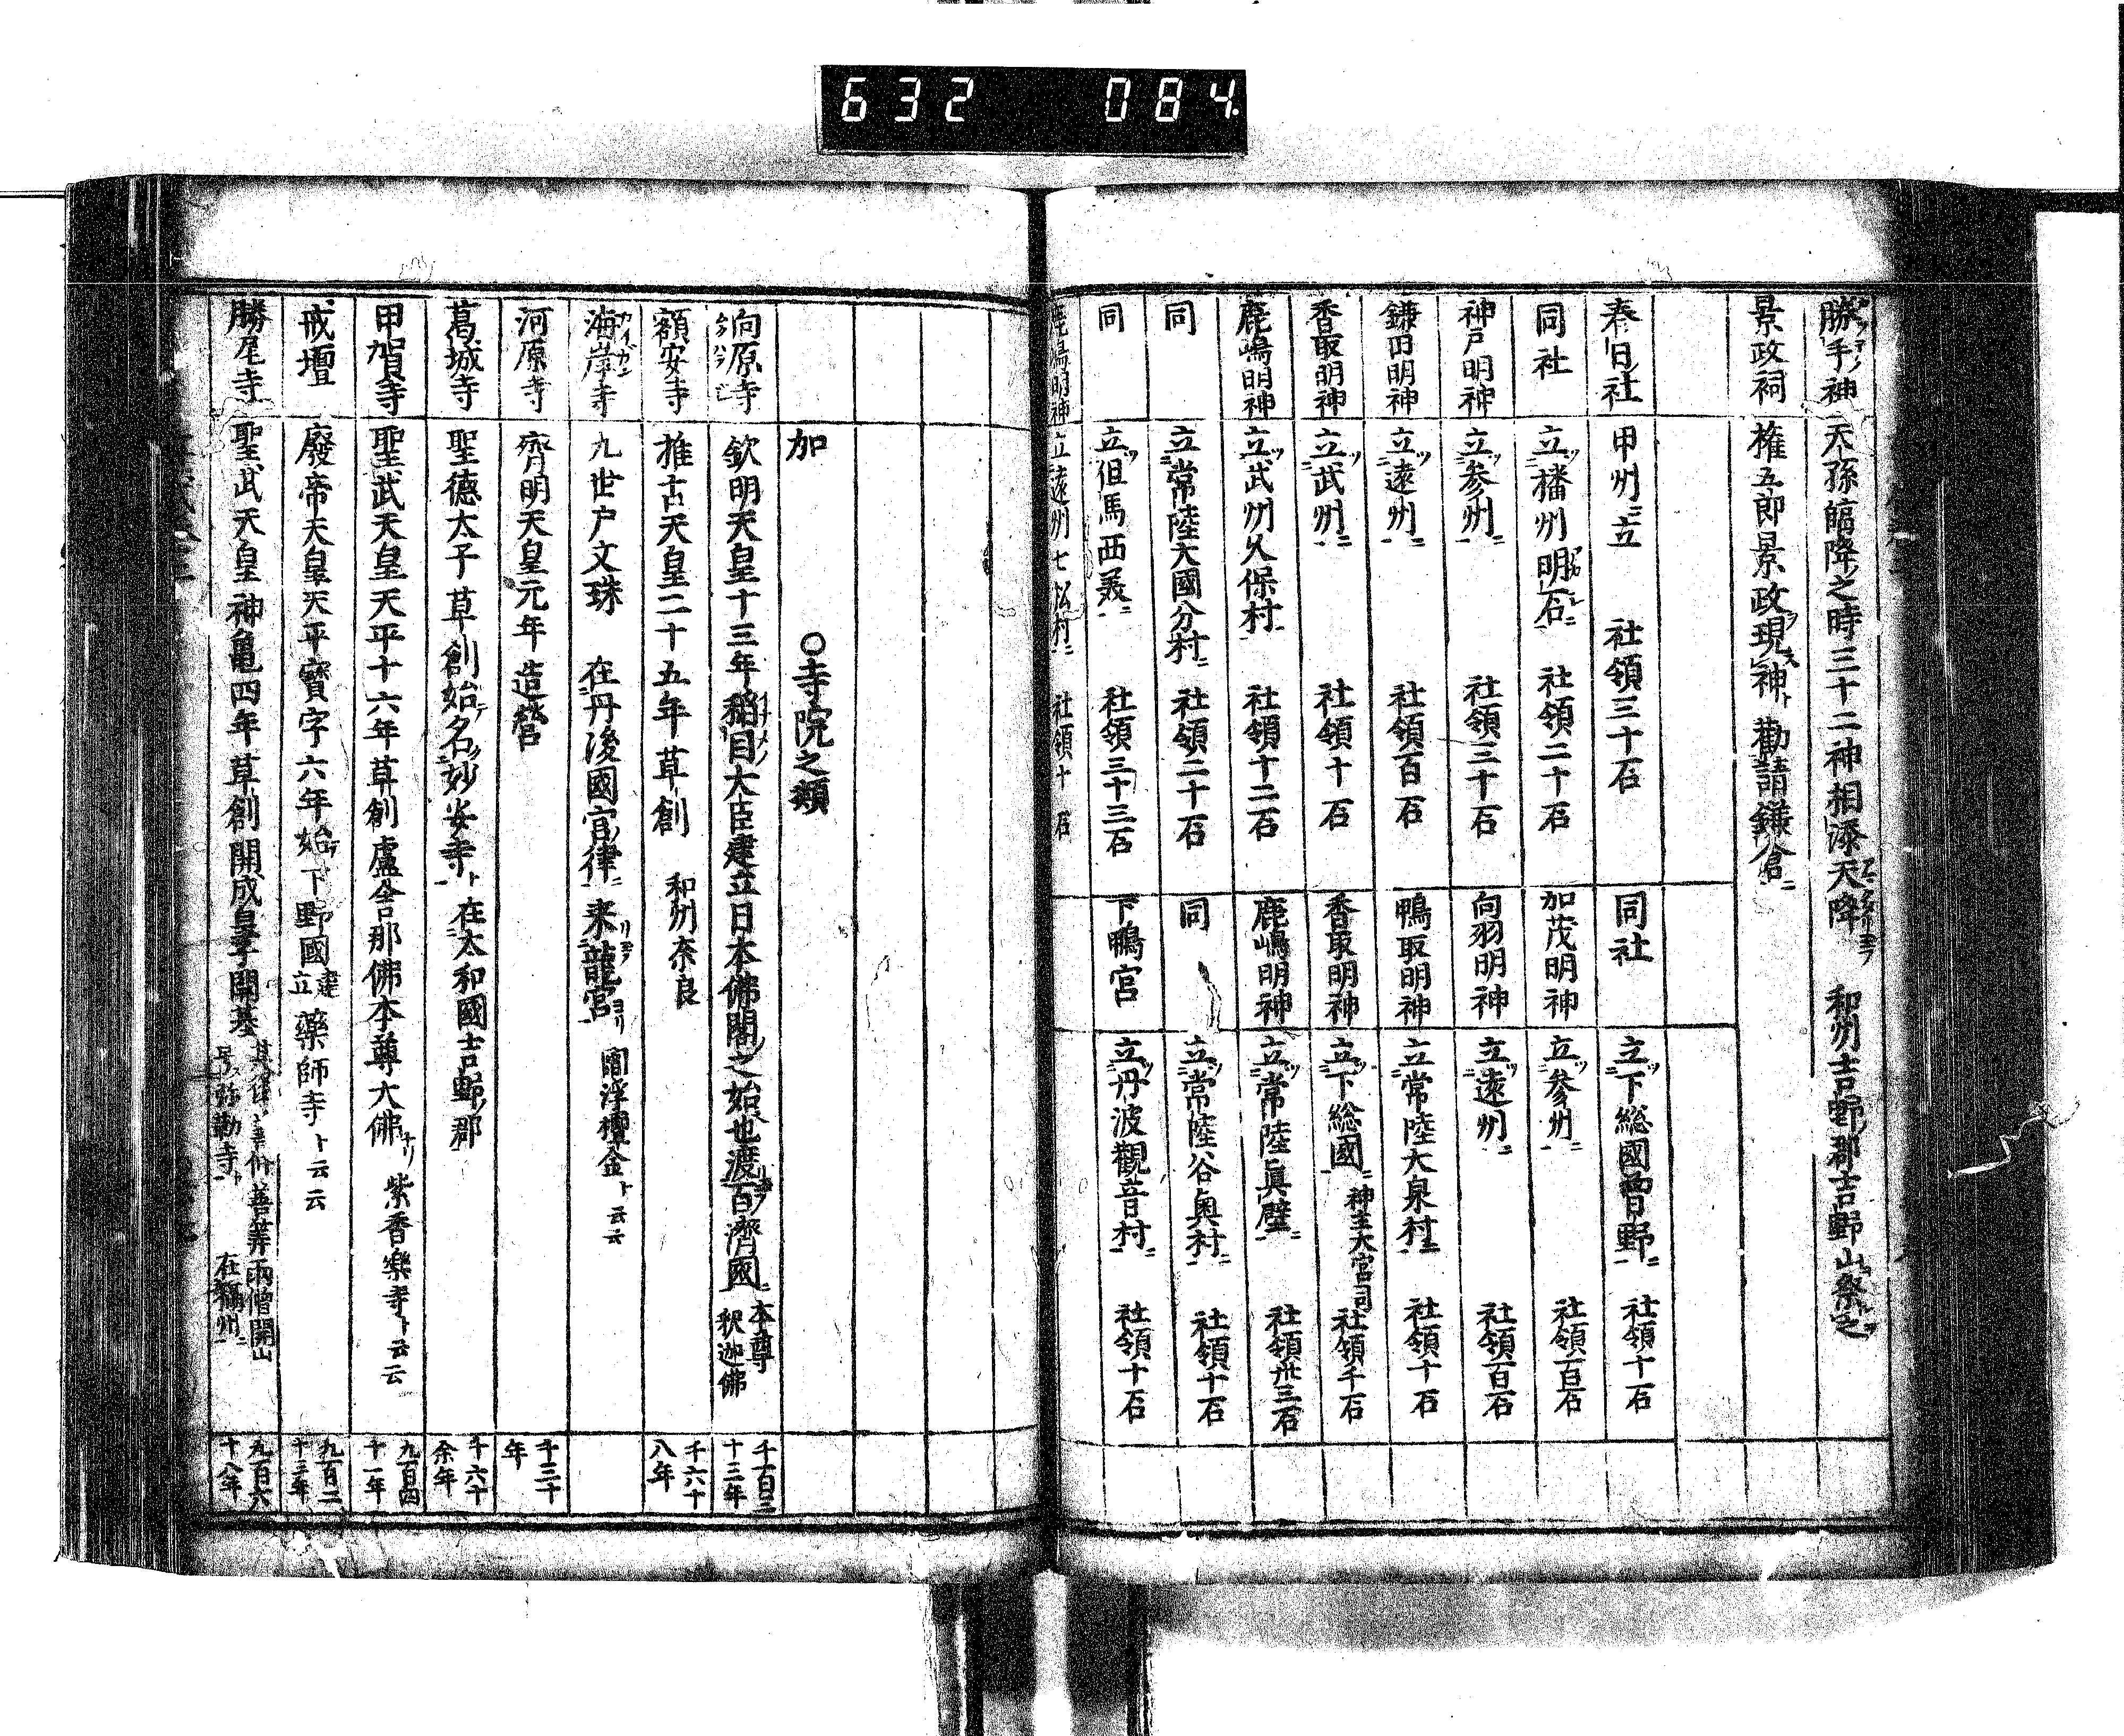 632 084
勝手神 天孫臨降之時三十二神相添天降 和州吉野郡吉野山祭之
景政祠 権五郎景政現神勸請鎌倉
春日社 甲州立 社領三十石 同社 立下総國曽野 社領十石
同社 立播州明石 社領二十石 加茂明神 立参州 社領百石
神戸明神 立参州 社領三十石 向羽明神 立遠州 社領百石
鎌田明神 立遠州 社領百石 鴨取明神 立常陸大泉村 社領十石
香取明神 立武州 社領十石 香取明神 立下総國 神主大宮司 社領千石
鹿嶋明神 立武州久保村 社領十二石 鹿嶋明神 立常陸真壁 社領卅三石
同 立常陸大國分村 社領二十石 同 立常陸谷奥村 社領十石
同 立但馬西美 社領三十三石 下鴨宮 立丹波觀音村 社領十石
鹿嶋明神 立遠州七松村 社領十石
加 〇寺院之類
向原寺 欽明天皇十三年稲目大臣建立日本佛閣之始也渡百濟國 本尊釈迦佛 千百二十三年
額安寺 推古天皇二十五年草創 和州奈良 千六十八年
海岸寺 カイガン 九世戸文珠 在丹後國宮津 来龍宮 閻浮檀金ト云云
河原寺 齊明天皇元年造営 千三十年
葛城寺 聖徳太子草創始名妙安寺 在太和國吉野郡 千六十余年
甲賀寺 聖武天皇天平十六年草創盧舎那佛本尊大佛 紫香楽寺ト云云 九百四十一年
戒壇 廢帝天皇天平寶字六年始下野國建立 藥師寺ト云云 九百二十三年
勝尾寺 聖武天皇神亀四年草創開成皇子開基 善筭兩僧開山 号弥勒寺 在攝州 九百六十八年